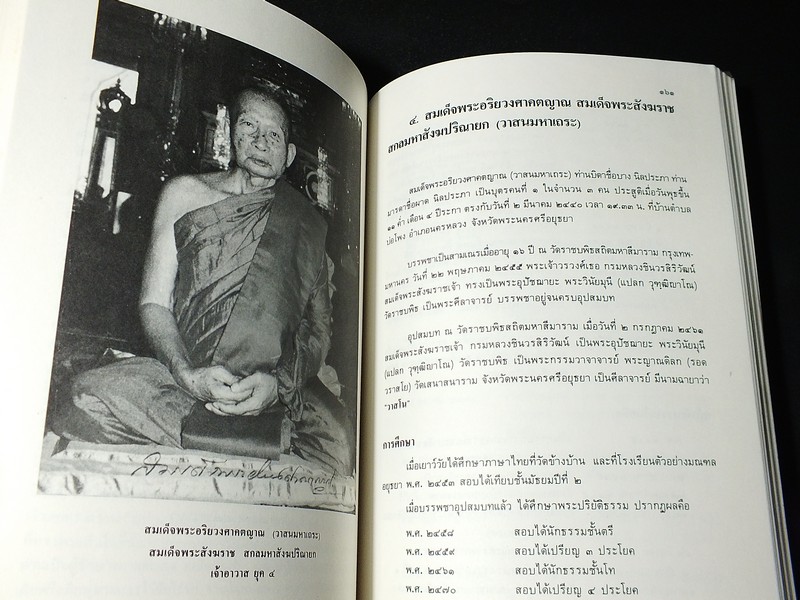 สมเด็จพระอริยวงศาคตญาณ
สมเด็จพระอริยวงศาคตญาณ (วาสนมหาเถระ)
สมเด็จพระสังฆราช สกลมหาสังฆปริณายก
เจ้าอาวาส ยุค ๔
๑๖๑
๔. สมเด็จพระอริยวงศาคตญาณ สมเด็จพระสังฆราช
สกลมหาสังฆปริณายก (วาสนมหาเถระ)
สมเด็จพระอริยวงศาคตญาณ (วาสนมหาเถระ) ท่านบิดาชื่อบาง นิลประภา ท่าน
มารดาชื่อผาด นิลประภา เป็นบุตรคนที่ ๑ ในจำนวน ๓ คน ประสูติเมื่อวันพุธขึ้น
๑๑ ค่ำ เดือน ๔ ปีระกา ตรงกับวันที่ ๒ มีนาคม ๒๔๔๐ เวลา ๑๙.๓๓ น. ที่บ้านตำบล
บ่อโพง อำเภอนครหลวง จังหวัดพระนครศรีอยุธยา
บรรพชาเป็นสามเณรเมื่ออายุ ๑๖ ปี ณ วัดราชบพิธสถิตมหาสีมาราม กรุงเทพ-
มหานคร วันที่ ๒๒ พฤษภาคม ๒๔๕๕ พระเจ้าวรวงศ์เธอ กรมหลวงชินวรสิริวัฒน์
สมเด็จพระสังฆราชเจ้า ทรงเป็นพระอุปัชฌายะ พระวินัยมุนี (แปลก วุฑฺฒิญาโณ)
วัดราชบพิธ เป็นพระศีลาจารย์ บรรพชาอยู่จนครบอุปสมบท
อุปสมบท ณ วัดราชบพิธสถิตมหาสีมาราม เมื่อวันที่ ๒ กรกฎาคม ๒๔๖๑
สมเด็จพระสังฆราชเจ้า กรมหลวงชินวรสิริวัฒน์ เป็นพระอุปัชฌายะ พระวินัยมุนี
(แปลก วุฑฺฒิญาโณ) วัดราชบพิธ เป็นพระกรรมวาจาจารย์ พระญาณดิลก (รอด
วราสโย) วัดเสนาสนาราม จังหวัดพระนครศรีอยุธยา เป็นศีลาจารย์ มีนามฉายาว่า
"วาสโน"
การศึกษา
เมื่อเยาว์วัยได้ศึกษาภาษาไทยที่วัดข้างบ้าน และที่โรงเรียนตัวอย่างมณฑล
อยุธยา พ.ศ. ๒๔๕๓ สอบได้เทียบชั้นมัธยมปีที่ ๒
เมื่อบรรพชาอุปสมบทแล้ว ได้ศึกษาพระปริยัติธรรม ปรากฏผลคือ
พ.ศ. ๒๔๕๘ สอบได้นักธรรมชั้นตรี
พ.ศ. ๒๔๕๙ สอบได้เปรียญ ๓ ประโยค
พ.ศ. ๒๔๖๑ สอบได้นักธรรมชั้นโท
พ.ศ. ๒๔๗๐ สอบได้เปรียญ ๔ ประโยค